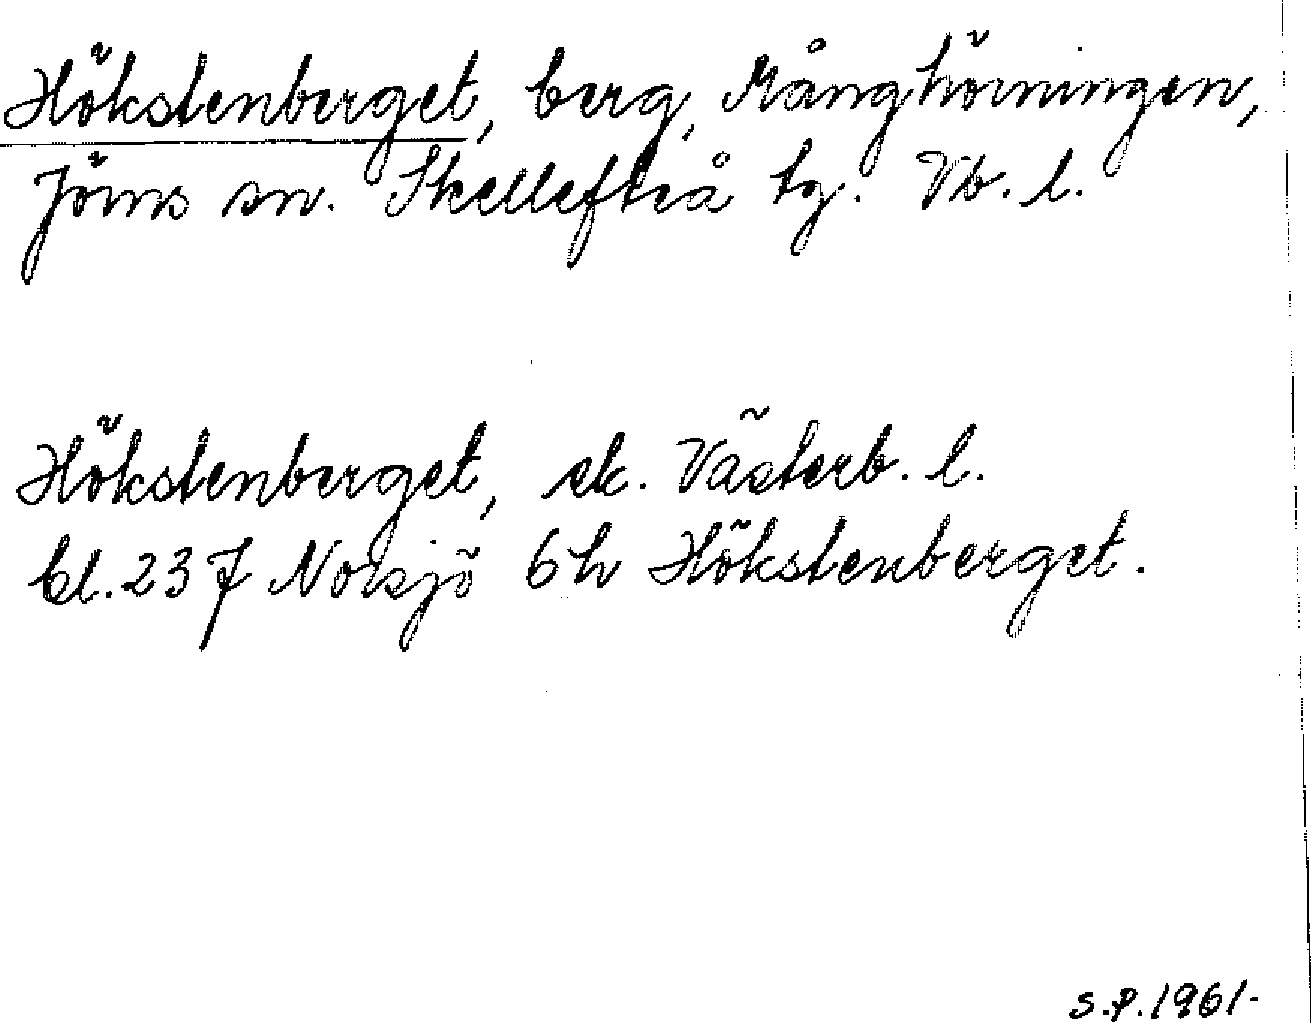 Hökstenberget, berg, Månghörningen,
Jörns sn. Skellefteå tg. Vb. l.
Hökstenberget, ek. Västerb. l.
bl. 237 Norsjö 6h Hökstenberget.
S.P. 1961.